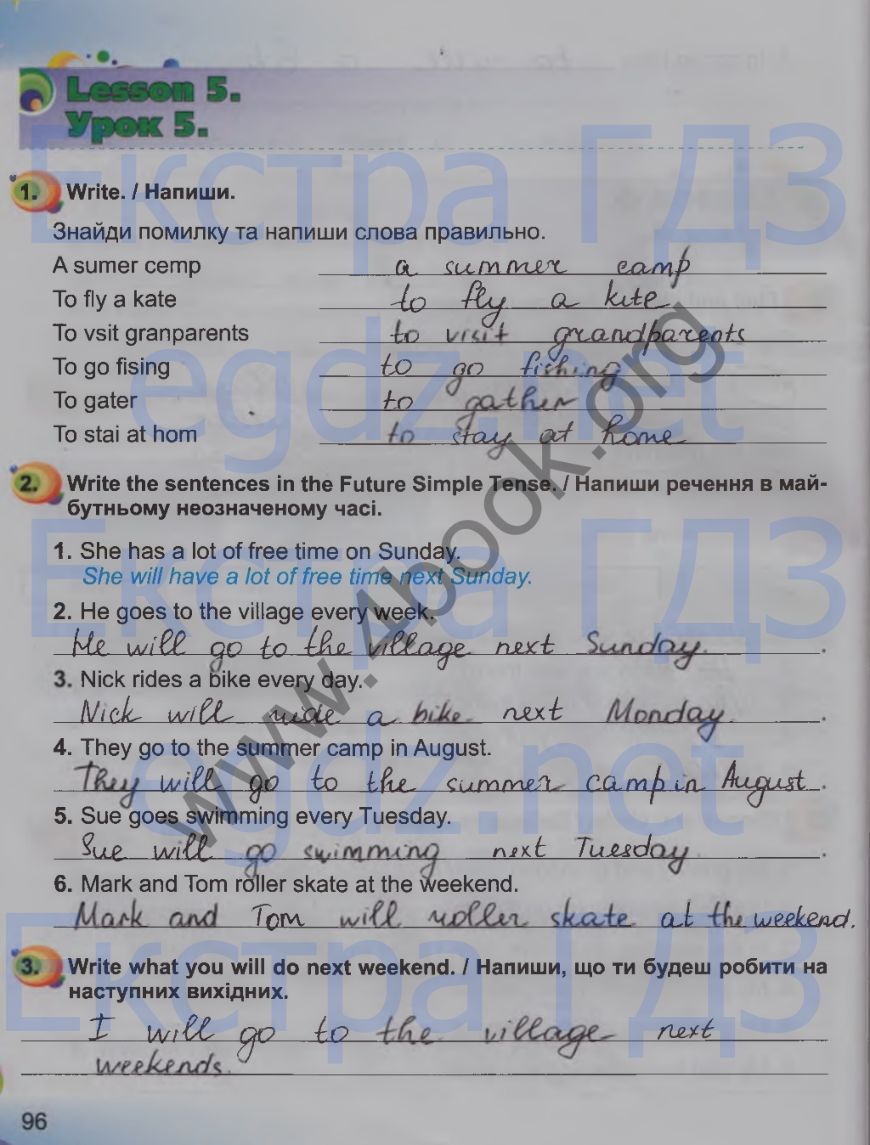 Lesson 5.
Урок 5.
1. Write. / Напиши.
Знайди помилку та напиши слова правильно.
A sumer cemp a summer camp
To fly a kate to fly a kite
To vsit granparents to visit grandparents
To go fising to go fishing
To gater to gather
To stai at hom to stay at home
2. Write the sentences in the Future Simple Tense. / Напиши речення в май-
бутньому неозначеному часі.
1. She has a lot of free time on Sunday.
She will have a lot of free time next Sunday.
2. He goes to the village every week.
He will go to the village next Sunday.
3. Nick rides a bike every day.
Nick will ride a bike next Monday.
4. They go to the summer camp in August.
They will go to the summer camp in August.
5. Sue goes swimming every Tuesday.
Sue will go swimming next Tuesday.
6. Mark and Tom roller skate at the weekend.
Mark and Tom will roller skate at the weekend.
3. Write what you will do next weekend. / Напиши, що ти будеш робити на
наступних вихідних.
I will go to the village next
weekends.
96
Екстра ГДЗ
egdz.net
Екстра ГДЗ
egdz.net
Екстра ГДЗ
www.4book.org